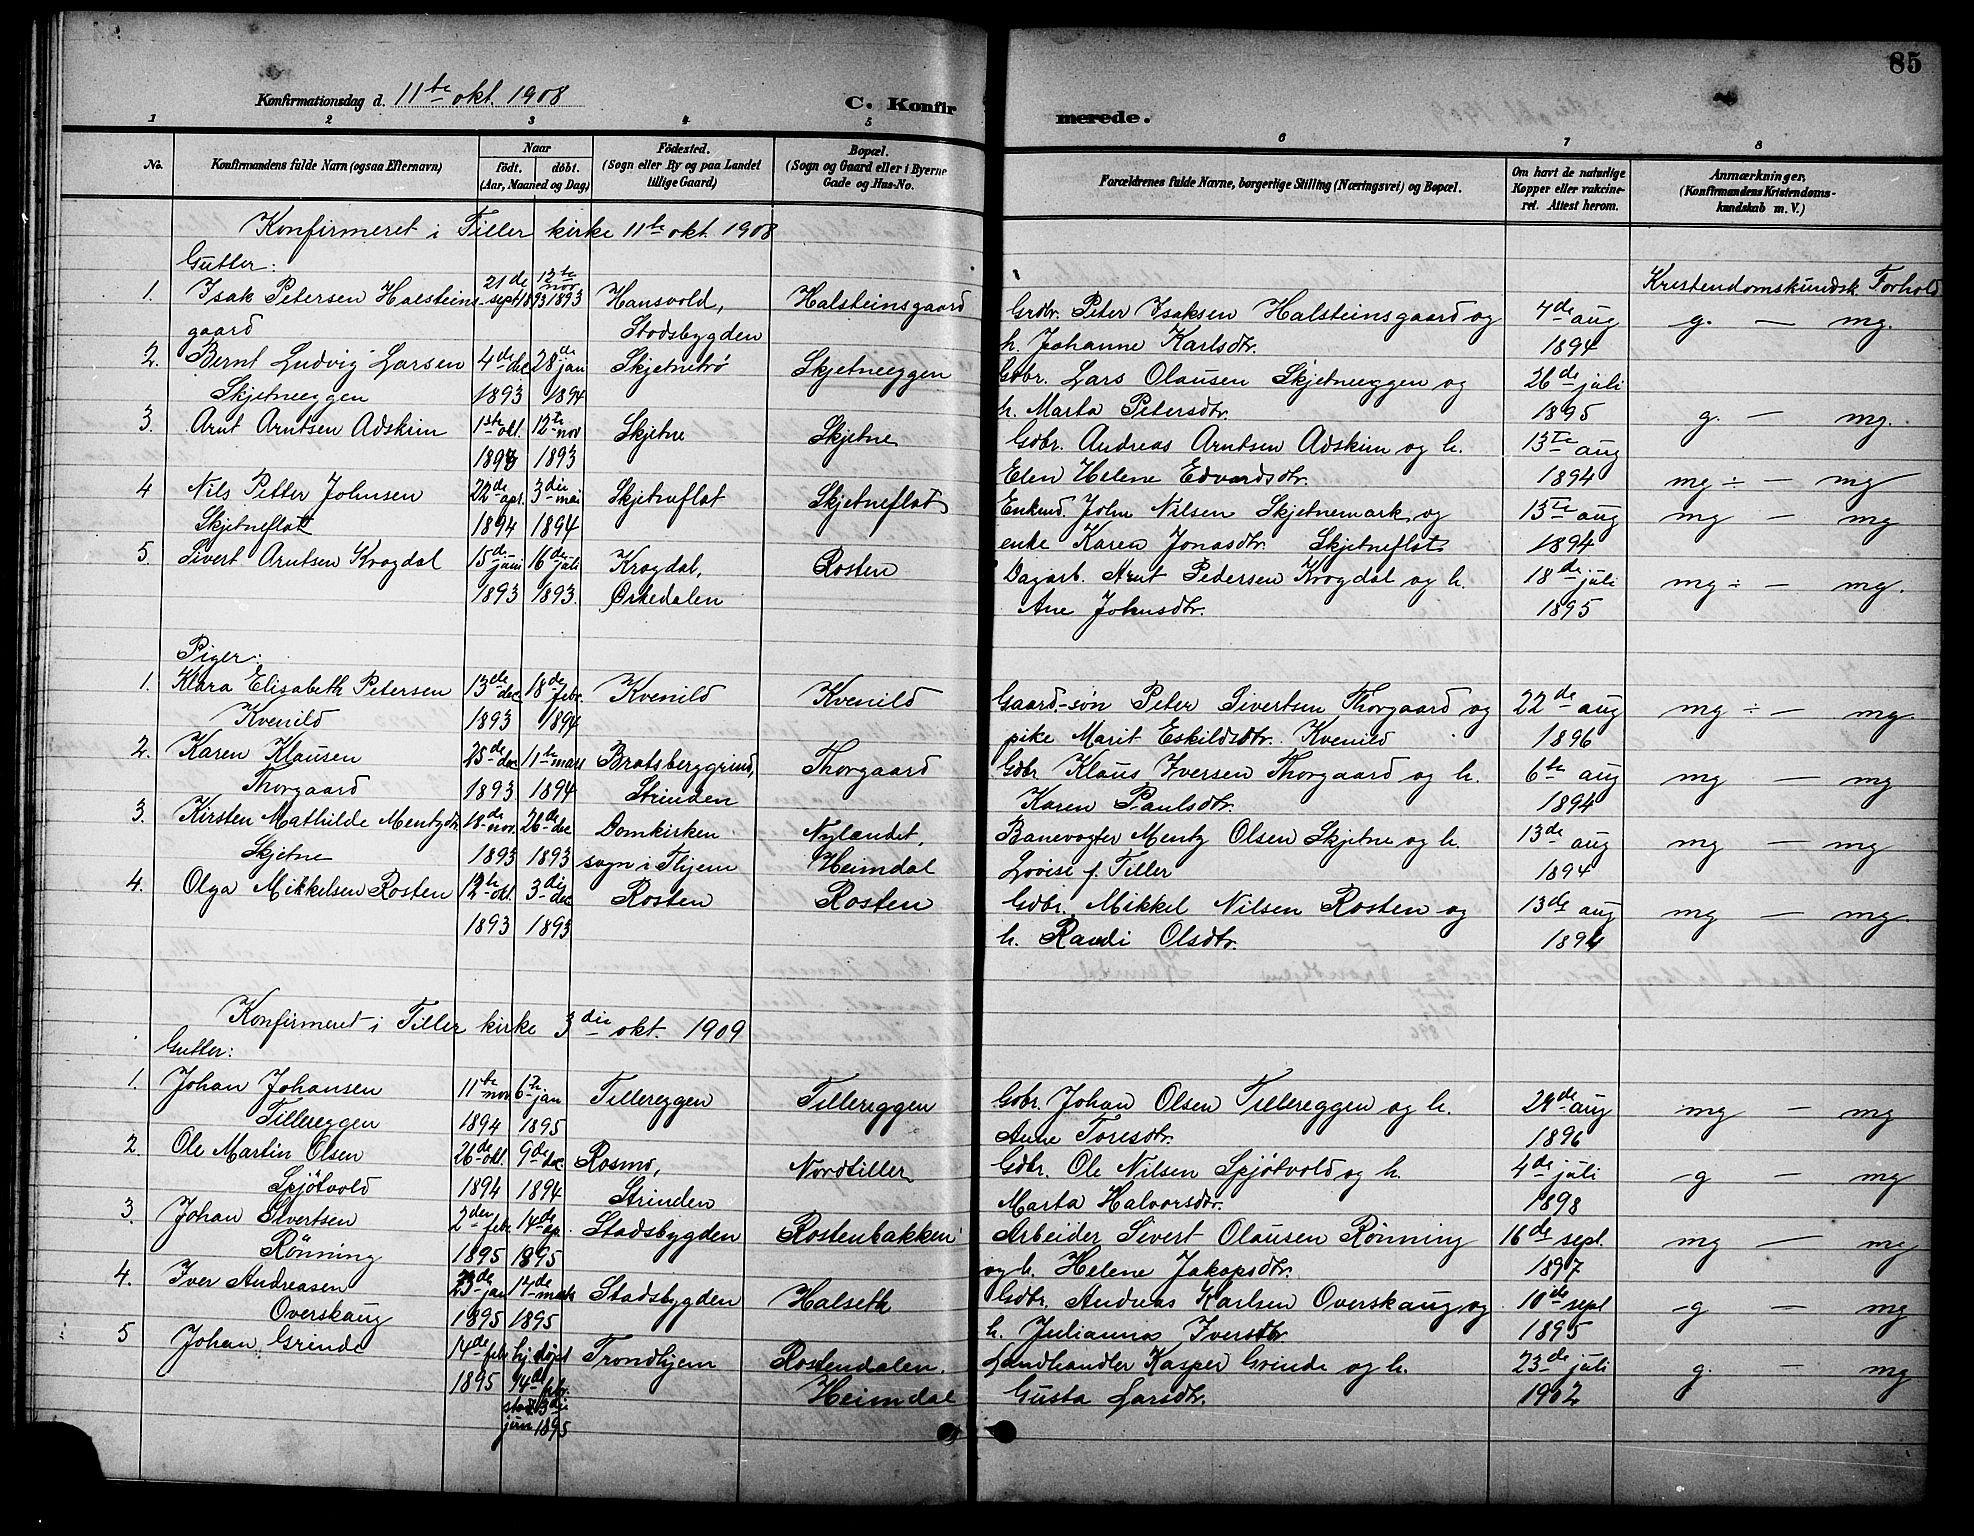 85
Konfirmationsdag d. 11te okt. 1908
C. Konfirmerede.
1 2 3 4 5 6 7 8
No. Konfirmandens fulde Navn (ogsaa Efternavn) Naar födt. döbt. (Aar, Maaned og Dag) Födested. (Sogn eller By og paa Landet tillige Gaard) Bopæl. (Sogn og Gaard eller i Byerne Gade og Hus-No. Forældrenes fulde Navne, borgerlige Stilling (Næringsvei) og Bopæl. Om havt de naturlige Kopper eller vakcineret. Attest herom. Anmærkninger. (Konfirmandens Kristendomskundskab m. V.)
Konfirmeret i Tiller kirke 11te okt. 1908
Gutter:
Kristendomskundsk. Forhold
1. Isak Petersen Halsteins- 21de sept 1893 12te nov 1893 Hansvold, Halsteinsgaard Grdbr. Peter Isaksen Halsteinsgaard og 4de aug g. — mg.
gaard Stadsbygden h. Johanne Karlsdtr. 1894
2. Bernt Ludvig Larsen 4de dec 28de jan Skjetnetrø Skjetneeggen Gdbr. Lars Olausen Skjetneeggen og 26de juli
Skjetneeggen 1893 1894 h. Marta Petersdtr. 1895 g. — mg.
3. Arnt Arntsen Adskim 1ste okt. 12te nov Skjetne Skjetne Gdbr. Andreas Arntsen Adskim og h. 13te aug
1893 1893 Elen Helene Edvardsdtr. 1894 mg ÷ — mg
4 Nils Petter Johnsen 22de apr. 3die mai Skjetneflat Skjetneflat Enkmd. John Nilsen Skjetnemark og 13te aug mg — mg
Skjetneflatt 1894 1894 enke Karen Jonasdtr. Skjetneflat 1894
5. Sivert Arntsen Krogdal 15de juni 16de juli Krogdal, Rosten Dagarb. Arnt Pedersen Krogdal og h. 18de juli mg ÷ — mg.
1893 1893. Ørkedalen Ane Johnsdtr. 1895
Piger:
1. Klara Elisabeth Petersen 13de dec 18de febr. Kvenild Kvenild Gaard.-søn Peter Sivertsen Thorgaard og 22de aug mg ÷ — mg.
Kvenild 1893 1894 pike Marit Eskildsdtr. Kvenild 1896
2. Karen Klausen 25de dec 11te mars Bratsberggrind, Thorgaard Gdbr Klaus Iversen Thorgaard og h. 6te aug mg — mg
Thorgaard 1893 1894 Strinden Karen Paulsdtr. 1894
3. Kirsten Mathilde Mentzdtr. 18de nov. 26de dec Domkirken Nylændet, Banevogter Mentz Olsen Skjetne og h. 13de aug mg — mg
Skjetne 1893 1893 sogn i Thjem Heimdal Lovise f. Tiller 1894
4. Olga Mikkelsen Rosten 12te okt. 3die dec Rosten Rosten Gdbr. Mikkel Nilsen Rosten og 13de aug mg — mg.
1893 1893 h. Randi Olsdtr. 1894
Konfirmeret i Tiller kirke 3die okt. 1909
Gutter:
1. Johan Johansen 11te nov 6te jan Tillereggen Tillereggen Gdbr. Johan Olsen Tillereggen og h. 29de aug mg — mg
Tillereggen 1894 1895 Anne Toresdtr. 1896
2. Ole Martin Olsen 26de okt. 9de dec Rosmo, Nordtiller Gdbr. Ole Nilsen Spjøtvold og h. 4de juli g — mg
Spjøtvold 1894 1894 Strinden Marta Halvorsdtr. 1898
3. Johan Sivertsen 2den febr. 14de ap. Stadsbygden Rostenbakken Arbeider Sivert Olausen Rønning 16de sept. mg — mg
Rønning 1895 1895 og h. Helene Jakopsdtr. 1897
4. Iver Andreasen 23de jan 17de mars Stadsbygden Halseth Gdbr. Andreas Karlsen Overskaug og 10de sept g — mg
Overskaug 1895 1895 h. Julianna Iversdtr 1895
5 Johan Grinde 14de febr hj. døpt Trondhjem Rostendalen, Landhandler Kasper Grinde og h. 23de juli g. — mg
1895 14de febr. Heimdal Gusta Larsdtr. 1902
stad. 3die
juni 1895